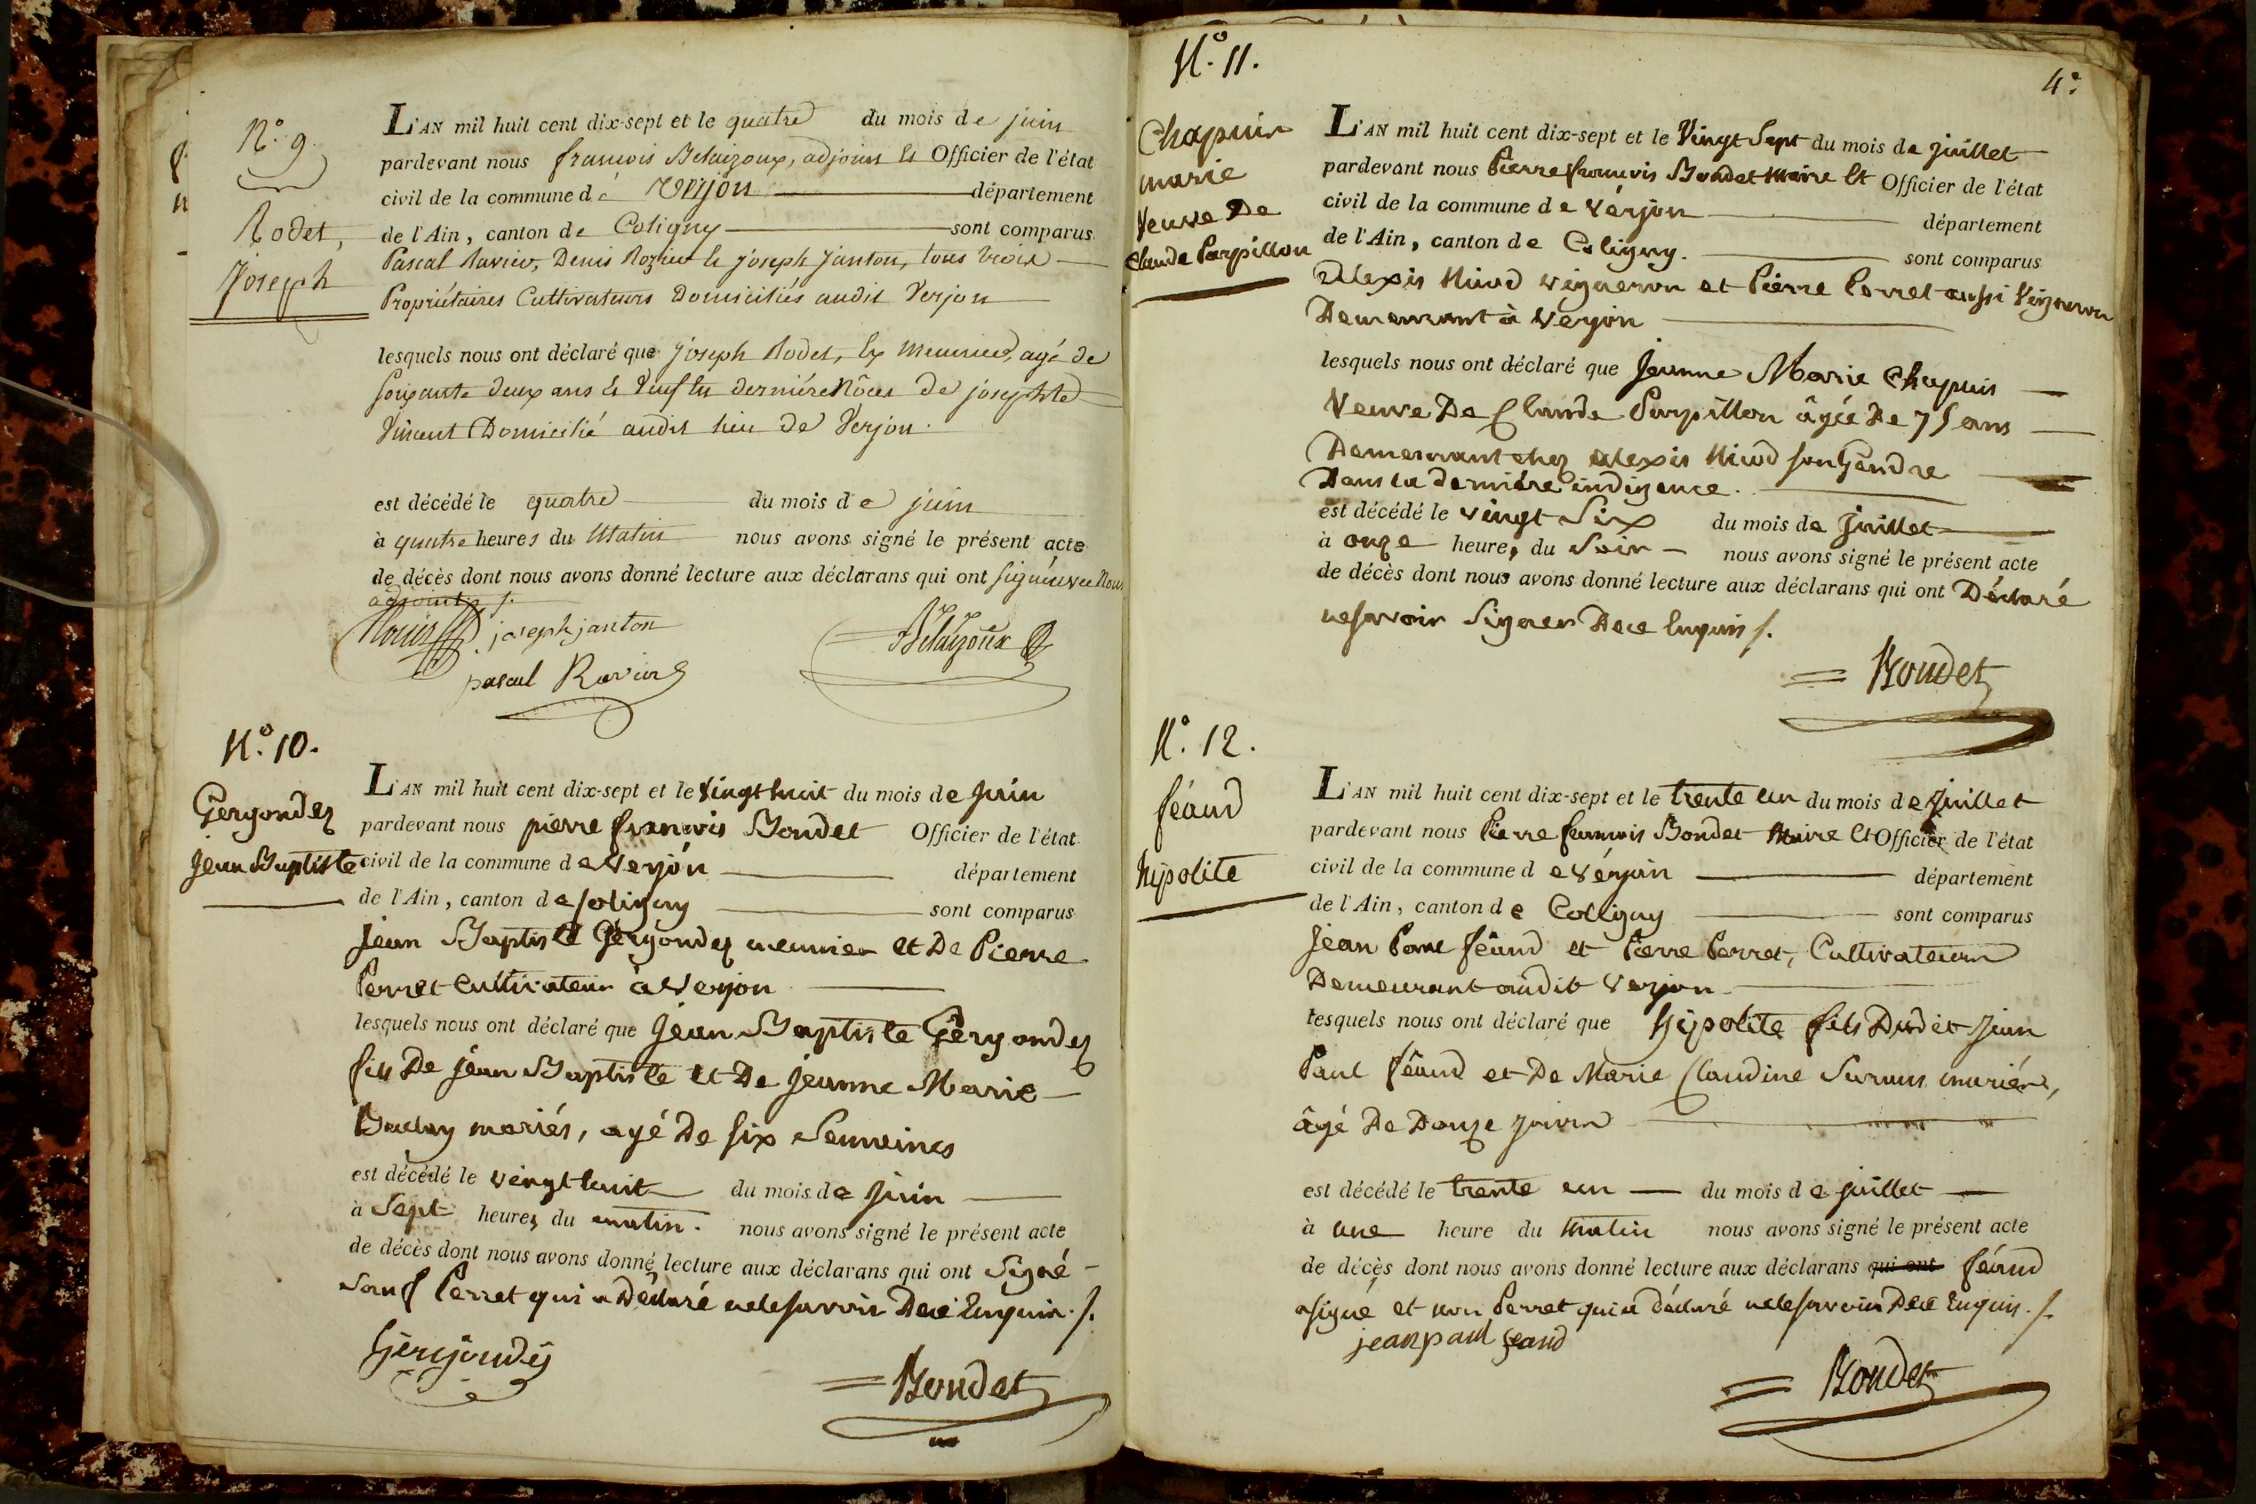 N.° 9.
Rodet,
Joseph
L'AN mil huit cent dix-sept et le quatre du mois de juin
pardevant nous francois Belaizoux, adjoint et Officier de l'état
civil de la commune de Verjon département
de l'Ain, canton de Coligny sont comparus
Pascal Ravier, Denis et joseph janton, tous trois
Propriétaires Cultivateurs Domiciliés audit Verjon
lesquels nous ont déclaré que joseph Rodet, Ex meunier, agé de
soixante deux ans et Veuf en dernière Nôces de josephte
Vincent Domicilié audit lieu de Verjon.
est décédé le quatre du mois de juin
à quatre heures du Matin nous avons signé le présent acte
de décès dont nous avons donné lecture aux déclarans qui ont signé avec Nous
adjoint /.
joseph janton
Belaizoux
pascal Ravier
N.° 10.
Gergondez
Jean Baptiste
L'AN mil huit cent dix-sept et le Vingt huit du mois de Juin
pardevant nous pierre francois Bondet Officier de l'état
civil de la commune de Verjon département
de l'Ain, canton de Coligny sont comparus
Jean Baptiste Gergondez meunier et De Pierre
Perret Cultivateur à Verjon
lesquels nous ont déclaré que Jean Baptiste Gergondez
fils De Jean Baptiste et De Jeanne Marie
mariés, agé De six Semeines
est décédé le vingt huit du mois de Juin
à Sept heures du matin. nous avons signé le présent acte
de décès dont nous avons donné lecture aux déclarans qui ont Signé
sauf Perret qui a Déclaré ne le savoir De ce Enquis. /.
Gergondez
Bondet
4.e
N.° 11.
Chapuis
marie
Veuve De
Claude Parpillon
L'AN mil huit cent dix-sept et le Vingt Sept du mois de Juillet
pardevant nous Pierre francois Bondet Maire Et Officier de l'état
civil de la commune de Verjon département
de l'Ain, canton de Coligny. sont comparus
Alexis Niod vigneron et Pierre Perret aussi Vigneron
Demeurant à Verjon
lesquels nous ont déclaré que Jeanne Marie Chapuis
Veuve De Claude Parpillon âgée De 75 ans
Demeurant chez Alexis Niod son Gendre
Dans la dernière indigence.
est décédé le vingt Six du mois de Juillet
à onze heures du Soir nous avons signé le présent acte
de décès dont nous avons donné lecture aux déclarans qui ont Déclaré
ne savoir Signer De ce Enquis /.
Bondet
N.° 12.
féaud
hipolite
L'AN mil huit cent dix-sept et le trente un du mois de Juillet
pardevant nous Pierre francois Bondet Maire Et Officier de l'état
civil de la commune de Verjon département
de l'Ain, canton de Colligny sont comparus
Jean Paul féaud et Pierre Perret, Cultivateurs
Demeurant audit Verjon
lesquels nous ont déclaré que hipolite fils Dudit Jean
Paul féaud et De Marie Claudine mariés,
âgé De Douze jours
est décédé le trente un du mois de Juillet
à une heure du Matin nous avons signé le présent acte
de décès dont nous avons donné lecture aux déclarans qui ont féaud
a signé et non Perret qui a déclaré ne le savoir De ce Enquis. /.
jean paul feaud
Bondet